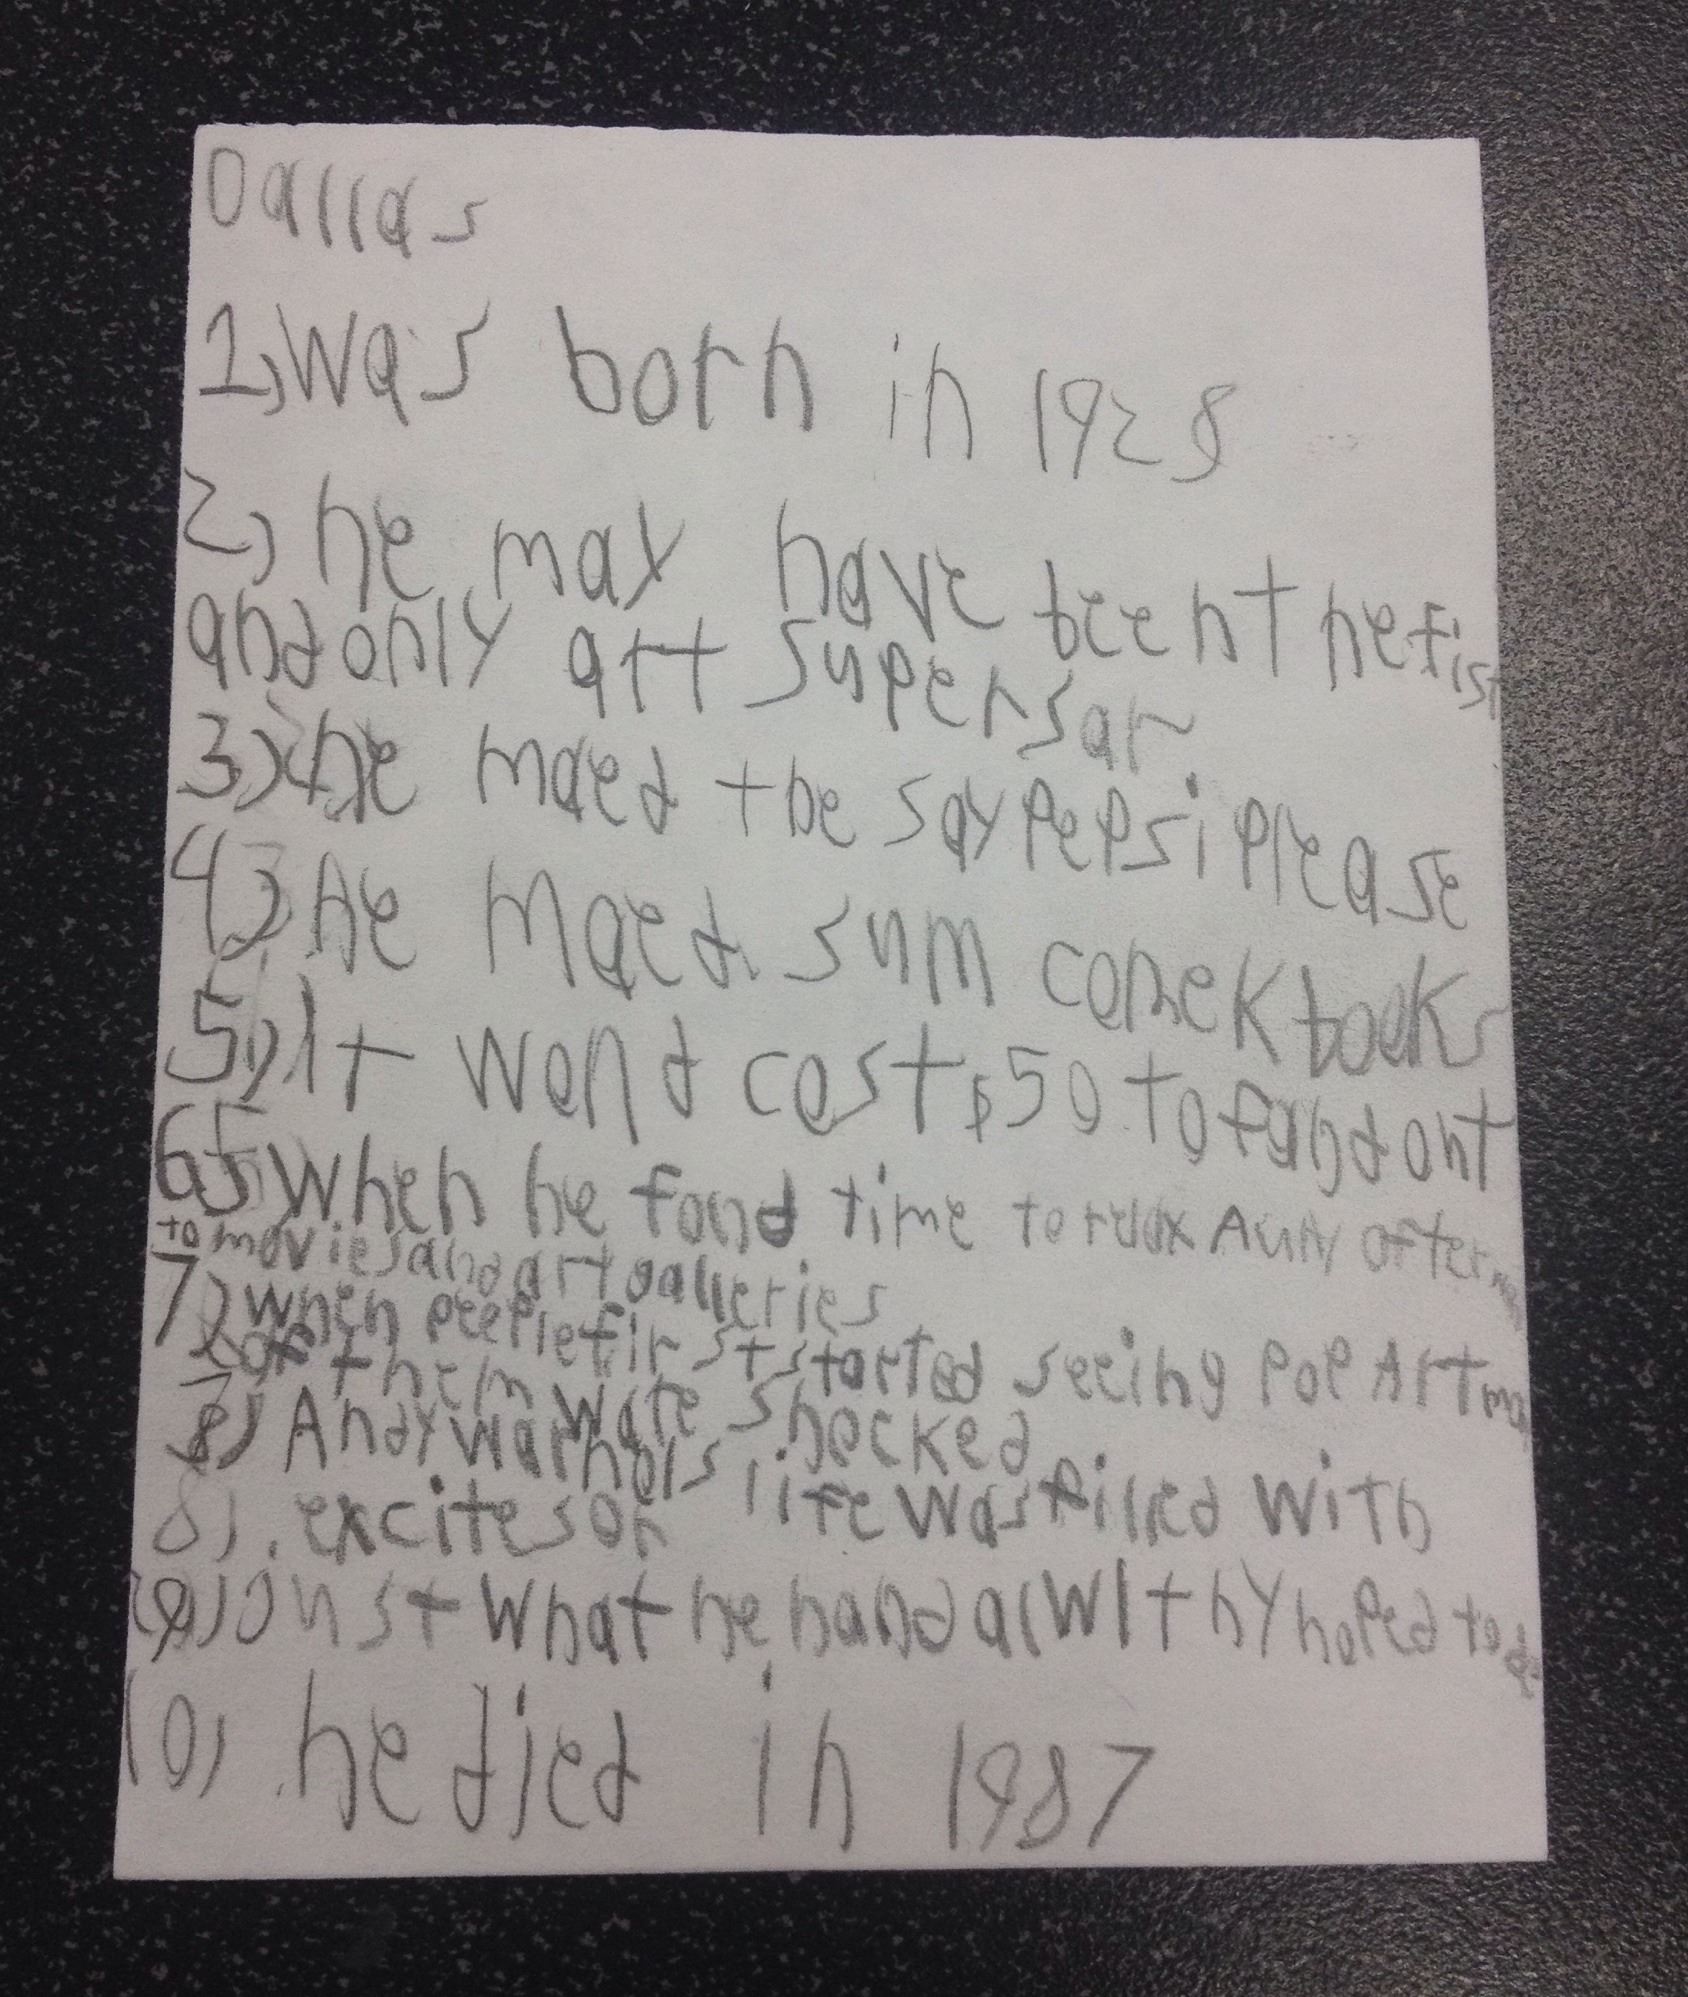 Dallas
1, Was born in 1928
2, he may have been the fist
and only art supersar
3, he maed tbe say Pepsi Please
4, he maed sum comek books
5, It wond cost $50 to fand ont
6, When he fond time to relax Andy often
to movies and art galleries
7, when peeple first started seeing Pop Art
of them ware shocked
8, Andy warhols life was filled with
excitesor
9, Just what he hand alwithy hoped to
10, he died in 1987